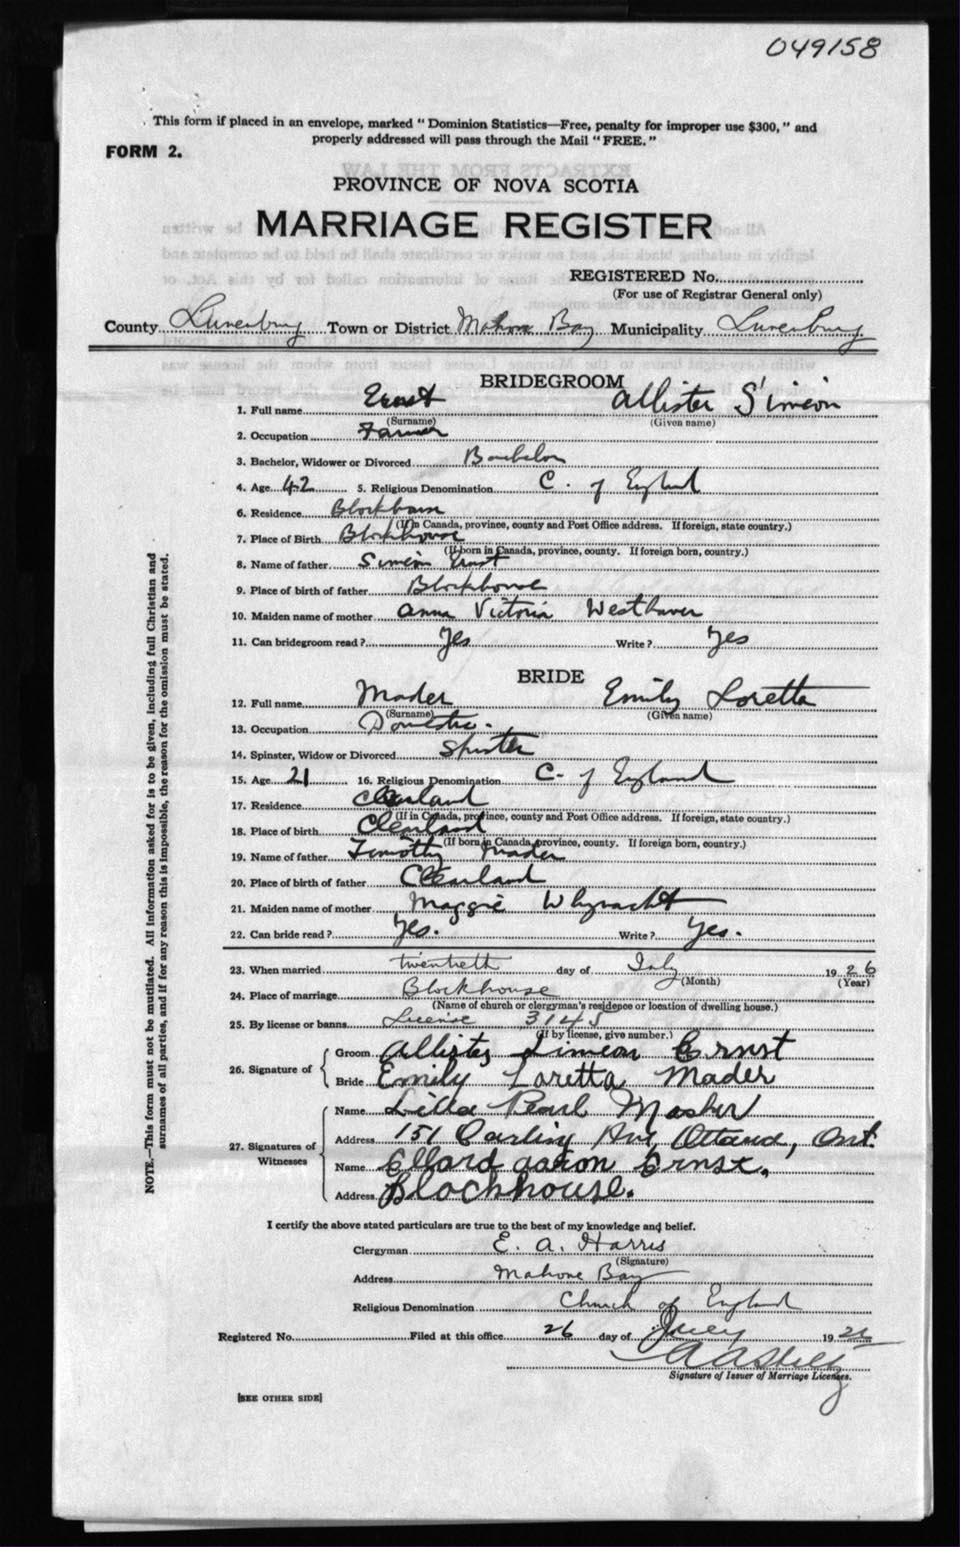 049158
This form if placed in an envelope, marked "Dominion Statistics—Free, penalty for improper use $300," and
properly addressed will pass through the Mail "FREE."
FORM 2.
PROVINCE OF NOVA SCOTIA
MARRIAGE REGISTER
REGISTERED No.
(For use of Registrar General only)
County Lunenburg Town or District Mahone Bay Municipality Lunenburg
BRIDEGROOM
1. Full name Ernst Allister Simeon
(Surname) (Given name)
2. Occupation Farmer
3. Bachelor, Widower or Divorced Bachelor
4. Age 42 5. Religious Denomination C. of England
6. Residence Blockhouse
(If in Canada, province, county and Post Office address. If foreign, state country.)
7. Place of Birth Blockhouse
(If born in Canada, province, county. If foreign born, country.)
8. Name of father Simeon Ernst
9. Place of birth of father Blockhouse
10. Maiden name of mother Anna Victoria Westhaver
11. Can bridegroom read? Yes Write? Yes
BRIDE
12. Full name Mader Emily Loretta
(Surname) (Given name)
13. Occupation Domestic.
14. Spinster, Widow or Divorced Spinster
15. Age 21 16. Religious Denomination C. of England
17. Residence Clearland
(If in Canada, province, county and Post Office address. If foreign, state country.)
18. Place of birth Clearland
(If born in Canada, province, county. If foreign born, country.)
19. Name of father Timothy Mader
20. Place of birth of father Clearland
21. Maiden name of mother Maggie Whynacht
22. Can bride read? Yes. Write? Yes.
23. When married twentieth day of July 1926
(Month) (Year)
24. Place of marriage Blockhouse
(Name of church or clergyman's residence or location of dwelling house.)
25. By license or banns License 3145
(If by license, give number.)
26. Signature of
Groom Allister Simeon Ernst
Bride Emily Loretta Mader
27. Signatures of Witnesses
Name Lilla Pearl Mosher
Address 151 Carling Ave, Ottawa, Ont.
Name Ellard Aaron Ernst.
Address Blockhouse.
I certify the above stated particulars are true to the best of my knowledge and belief.
Clergyman E. A. Harris
(Signature)
Address Mahone Bay
Religious Denomination Church of England
Registered No. Filed at this office 26 day of July 1926
Signature of Issuer of Marriage Licenses.
[SEE OTHER SIDE]
NOTE.—This form must not be mutilated. All information asked for is to be given, including full Christian and
surnames of all parties, and if for any reason this is impossible, the reason for the omission must be stated.